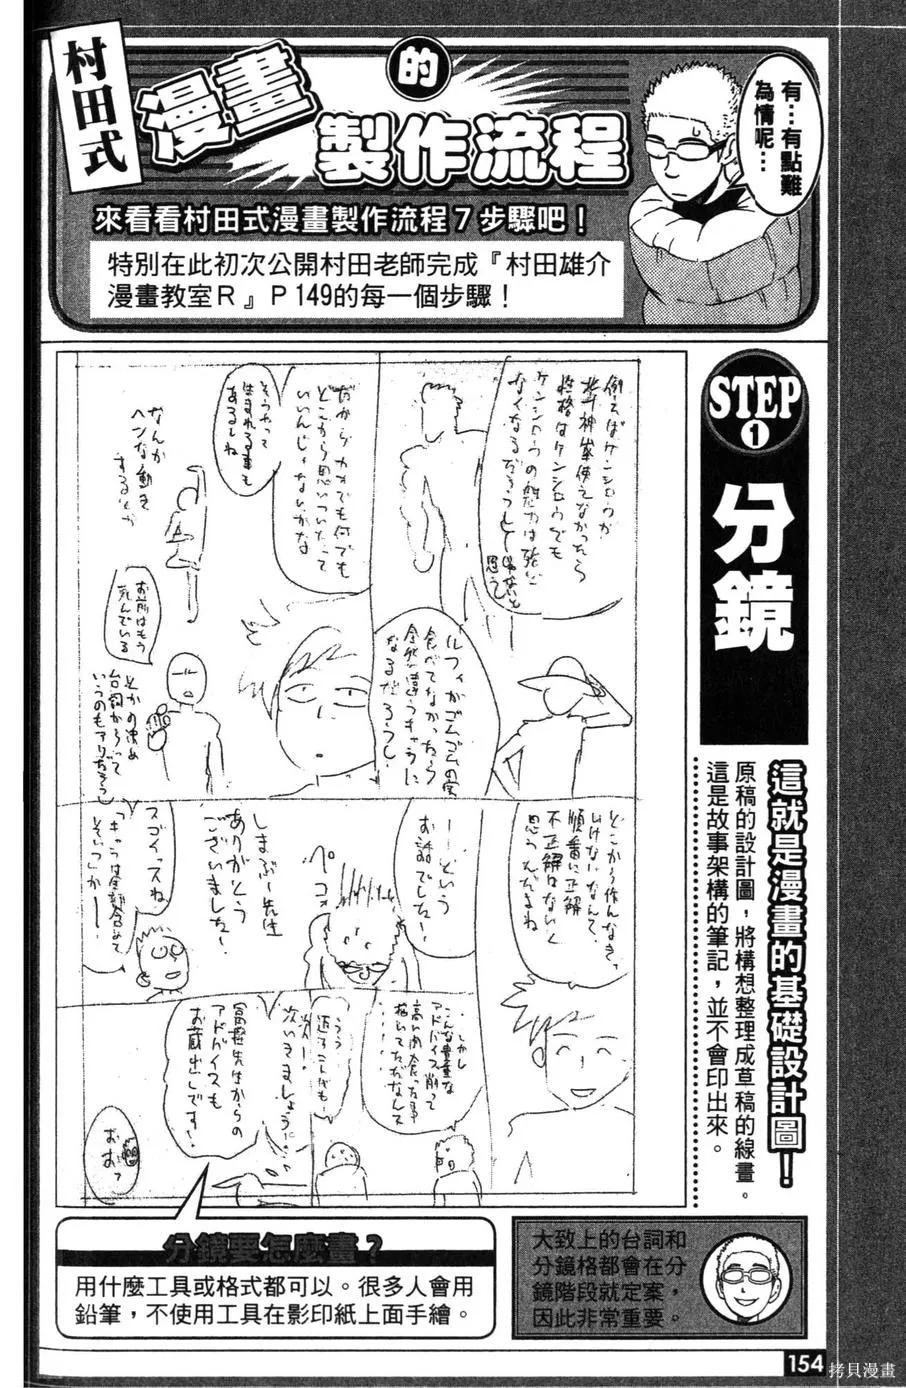 村田式
漫畫的製作流程
有…有點難
為情呢…
來看看村田式漫畫製作流程7步驟吧！
特別在此初次公開村田老師完成『村田雄介
漫畫教室R』P149的每一個步驟！
STEP
1
分鏡
這就是漫畫的基礎設計圖！
原稿的設計圖，將構想整理成草稿的線畫。
這是故事架構的筆記，並不會印出來。
例えばケンシロウが
北斗神拳使えなかったら
性格はケンシロウでも
ケンシロウの魅力は
なくなるだろうし
思う
だからカオでも何でも
どこから思いついたって
いいんじゃないかな
そうやって
生まれる事も
あるしね
なんか
ヘンな動き
する
ルフィがゴムゴムの実
食べてなかったら
全然違うキャラに
なるだろうし
お前はもう
死んでいる
とかの決め
台詞からって
いうのもアリだろうし
どこから作んなきゃ
いけないなんて
順番に正解
不正解はないと
思うんだよね
――という
お話でした！
ペコ
しまぶー先生
ありがとう
ございました！
スゴイっスね
「キャラは全部含めて
そいつ」かー
しかし
こんな貴重な
アドバイス削って
高い肉食った事
描いてただなんて
次…
次いきましょう
冨樫先生からの
アドバイスも
お蔵出しです！
おお？
分鏡要怎麼畫？
用什麼工具或格式都可以。很多人會用
鉛筆，不使用工具在影印紙上面手繪。
大致上的台詞和
分鏡格都會在分
鏡階段就定案，
因此非常重要。
154
拷貝漫畫